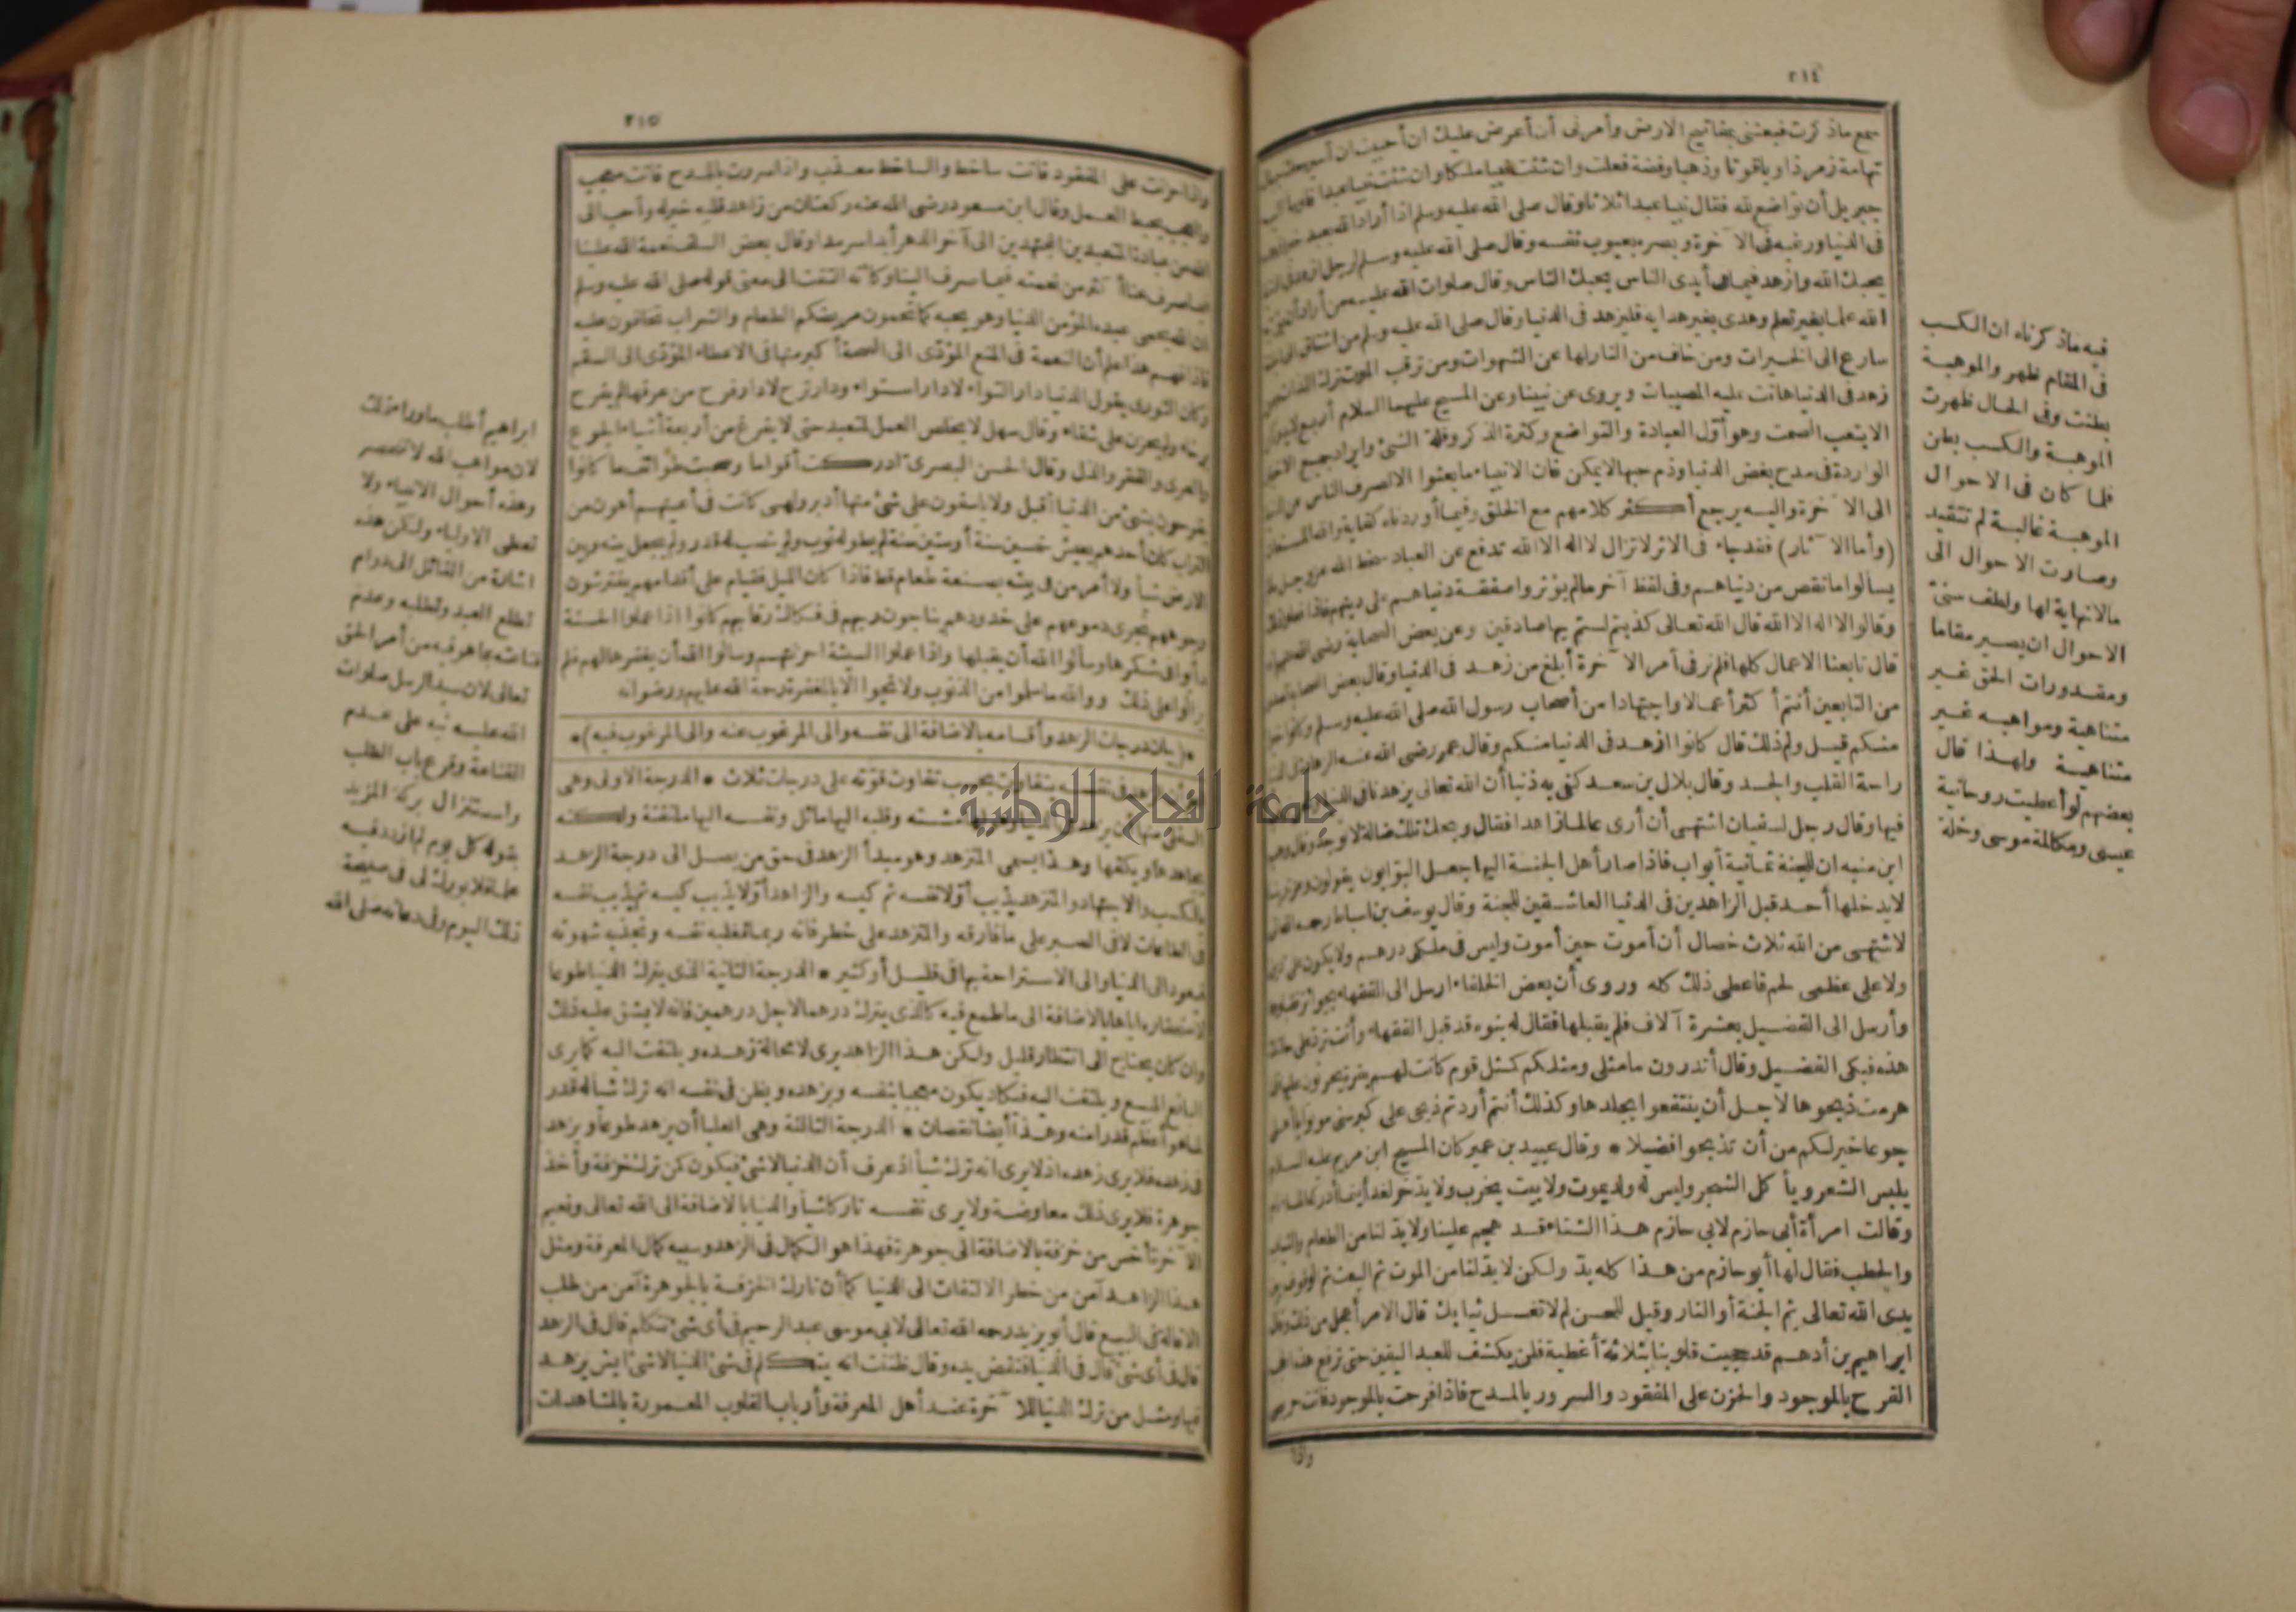 ٢١٤
سمع ماذكرت فبعثنى بمفاتيح الارض وأمرنى أن أعرض عليك ان أحببت ان أسير معك جبال
تهامة زمرذا وياقوتا وذهبا وفضة فعلت وان شئت نبيا ملكا وان شئت نبيا عبدا فأومأ اليه
جبريل أن تواضع لله فقال نبيا عبدا ثلاثا وقال صلى الله عليه وسلم اذا أراد الله بعبد خيرا زهده
فى الدنيا ورغبه فى الآخرة وبصره بعيوب نفسه وقال صلى الله عليه وسلم لرجل ازهد فى الدنيا
يحبك الله وازهد فيما فى أيدى الناس يحبك الناس وقال صلوات الله عليه من أراد أن يؤتيه
الله علما بغير تعلم وهدى بغير هداية فليزهد فى الدنيا وقال صلى الله عليه وسلم من اشتاق الى الجنة
سارع الى الخيرات ومن خاف من النار لها عن الشهوات ومن ترقب الموت ترك اللذات ومن
زهد فى الدنيا هانت عليه المصيبات ويروى عن نبينا وعن المسيح عليهما السلام أربع لا يدركن
الا بتعب الصمت وهو أول العبادة والتواضع وكثرة الذكر وقلة الشئ وايراد جميع الاخبار
الواردة فى مدح بغض الدنيا وذم حبها لا يمكن فان الانبياء ما بعثوا الا لصرف الناس عن الدنيا
الى الآخرة واليه يرجع أكثر كلامهم مع الخلق وفيما أوردناه كفاية والله المستعان
(وأما الآثار) فقد جاء فى الاثر لا تزال لا اله الا الله تدفع عن العباد سخط الله عز وجل ما لم
يسألوا ما نقص من دنياهم وفى لفظ آخر ما لم يؤثروا صفقة دنياهم على دينهم فاذا فعلوا ذلك
وقالوا لا اله الا الله قال الله تعالى كذبتم لستم بها صادقين وعن بعض الصحابة رضى الله عنهم أنه
قال تابعنا الاعمال كلها فلم نر فى أمر الآخرة أبلغ من زهد فى الدنيا وقال بعض الصحابة لصدر
من التابعين أنتم أكثر أعمالا واجتهادا من أصحاب رسول الله صلى الله عليه وسلم وكانوا خيرا
منكم قيل ولم ذلك قال كانوا أزهد فى الدنيا منكم وقال عمر رضى الله عنه الزهادة فى الدنيا
راحة القلب والجسد وقال بلال بن سعد كفى به ذنبا أن الله تعالى يزهدنا فى الدنيا
فيها وقال رجل لسفيان اشتهى أن أرى عالما زاهدا فقال ويحك تلك ضالة لا توجد وقال وهب
ابن منبه ان للجنة ثمانية أبواب فاذا صار أهل الجنة اليها جعل البوابون يقولون وعزة ربنا
لا يدخلها أحد قبل الزاهدين فى الدنيا العاشقين للجنة وقال يوسف بن اسباط رحمه الله انى
لا شتهى من الله ثلاث خصال أن أموت حين أموت وليس فى ملكى درهم ولا يكون على دين
ولا على عظمى لحم فاعطى ذلك كله وروى أن بعض الخلفاء ارسل الى الفقهاء بجوائز فقبلوها
وأرسل الى الفضيل بعشرة آلاف فلم يقبلها فقال له بنوه قد قبل الفقهاء وأنت ترد على حالتك
هذه فبكى الفضيل وقال أتدرون ما مثلى ومثلكم كمثل قوم كانت لهم بقرة يحرثون عليها فلما
هرمت ذبحوها لاجل أن ينتفعوا بجلدها وكذلك أنتم أردتم ذبحى على كبر سنى موتوا يا أهلى
جوعا خير لكم من أن تذبحوا فضيلا * وقال عبيد بن عمير كان المسيح ابن مريم عليه السلام
يلبس الشعر ويأكل الشجر وليس له ولد يموت ولا بيت يخرب ولا يدخر لغد أينما أدركه المساء نام
وقالت امرأة أبى حازم لابى حازم هذا الشتاء قد هجم علينا ولا بد لنا من الطعام والثياب
والحطب فقال لها أبو حازم من هذا كله بد ولكن لا بد لنا من الموت ثم البعث ثم الوقوف بين
يدى الله تعالى ثم الجنة أو النار وقيل للحسن لم لا تغسل ثيابك قال الامر أعجل من ذلك وقال
ابراهيم بن أدهم قد حجبت قلوبنا بثلاثة أغطية فلن يكشف للعبد اليقين حتى ترفع هذه الحجب
الفرح بالموجود والحزن على المفقود والسرور بالمدح فاذا فرحت بالموجود فانت حريص
واذا
فيه ماذكرناه ان الكسب
فى المقام ظهر والموهبة
بطنت وفى الحال ظهرت
الموهبة والكسب بطن
فلما كان فى الاحوال
الموهبة غالبة لم تتقيد
وصارت الاحوال الى
مالا نهاية لها ولطف سنى
الاحوال ان يصير مقاما
ومقدورات الحق غير
متناهية ومواهبه غير
متناهية ولهذا قال
بعضهم لو أعطيت روحانية
عيسى ومكالمة موسى وخلة
٢١٥
واذا حزنت على المفقود فانت ساخط والساخط معذب واذا سررت بالمدح فانت معجب
والعجب يحبط العمل وقال ابن مسعود رضى الله عنه ركعتان من زاهد قلبه خير له وأحب الى
الله من عبادة المتعبدين المجتهدين الى آخر الدهر أبدا سرمدا وقال بعض السلف نعمة الله علينا
فيما صرف عنا أكثر من نعمته فيما صرف الينا وكأنه التفت الى معنى قوله صلى الله عليه وسلم
ان الله يحمى عبده المؤمن الدنيا وهو يحبه كما تحمون مريضكم الطعام والشراب تخافون عليه
فاذا فهم هذا علم أن النعمة فى المنع المؤدى الى الصحة أكبر منها فى الاعطاء المؤدى الى السقم
وكان الثورى يقول الدنيا دار التواء لا دار استواء ودار ترح لا دار فرح من عرفها لم يفرح
برخاء ولم يحزن على شقاء وقال سهل لا يخلص العمل لمتعبد حتى لا يفزع من أربعة أشياء الجوع
والعرى والفقر والذل وقال الحسن البصرى أدركت أقواما وصحبت طوائف ما كانوا
يفرحون بشئ من الدنيا أقبل ولا يأسفون على شئ منها أدبر ولهى كانت فى أعينهم أهون من
التراب كان أحدهم يعيش خمسين سنة أو ستين سنة لم يطو له ثوب ولم ينصب له قدر ولم يجعل بينه وبين
الارض شيأ ولا أمر من فى بيته بصنعة طعام قط فاذا كان الليل فقيام على أقدامهم يفترشون
وجوههم تجرى دموعهم على خدودهم يناجون ربهم فى فكاك رقابهم كانوا اذا عملوا الحسنة
دأبوا فى شكرها وسألوا الله أن يقبلها واذا عملوا السيئة أحزنتهم وسألوا الله أن يغفرها لهم فلم
يزالوا على ذلك ووالله ما سلموا من الذنوب ولا نجوا الا بالمغفرة رحمة الله عليهم ورضوانه
*(بيان درجات الزهد وأقسامه بالاضافة الى نفسه والى المرغوب عنه والى المرغوب فيه)*
الزهد فى نفسه يتفاوت بحسب تفاوت قوته على درجات ثلاث * الدرجة الاولى وهى
السفلى منها أن يزهد فى الدنيا وهو لها مشته وقلبه اليها مائل ونفسه اليها ملتفتة ولكنه
يجاهدها ويكفها وهذا يسمى المتزهد وهو مبدأ الزهد فى حق من يصل الى درجة الزهد
بالكسب والاجتهاد والمتزهد يذيب أولا نفسه ثم كيسه والزاهد أولا يذيب كيسه ثم يذيب نفسه
فى الطاعات لا فى الصبر على ما فارقه والمتزهد على خطر فانه ربما تغلبه نفسه وتجذبه شهوته
فيعود الى الدنيا والى الاستراحة بها فى قليل أو كثير * الدرجة الثانية الذى يترك الدنيا طوعا
لاستحقاره اياها بالاضافة الى ما طمع فيه كالذى يترك درهما لاجل درهمين فانه لا يشق عليه ذلك
وان كان يحتاج الى انتظار قليل ولكن هذا الزاهد يرى لا محالة زهده ويلتفت اليه كما يرى
البائع المبيع ويلتفت اليه فيكاد يكون معجبا بنفسه وبزهده ويظن فى نفسه انه ترك شيأ له قدر
لما هو أعظم قدرا منه وهذا أيضا نقصان * الدرجة الثالثة وهى العليا أن يزهد طوعا ويزهد
فى زهده فلا يرى زهده اذ لا يرى انه ترك شيأ اذ عرف أن الدنيا لا شئ فيكون كمن ترك خزفة وأخذ
جوهرة فلا يرى ذلك معاوضة ولا يرى نفسه تاركا شيأ والدنيا بالاضافة الى الله تعالى ونعيم
الآخرة أخس من خزفة بالاضافة الى جوهرة فهذا هو الكمال فى الزهد وسببه كمال المعرفة ومثل
هذا الزاهد آمن من خطر الالتفات الى الدنيا كما أن تارك الخزفة بالجوهرة آمن من طلب
الاقالة فى البيع قال أبو يزيد رحمه الله تعالى لابى موسى عبد الرحيم فى أى شئ تتكلم قال فى الزهد
قال فى أى شئ قال فى الدنيا فنفض يده وقال ظننت انه يتكلم فى شئ الدنيا لا شئ ايش يزهد
فيها ومثل من ترك الدنيا للآخرة عند أهل المعرفة وأرباب القلوب المعمورة بالمشاهدات
ابراهيم أطلب ما وراء ذلك
لان مواهب الله لا تنحصر
وهذه أحوال الانبياء ولا
تعطى الاولياء ولكن هذه
اشارة من القائل الى دوام
تطلع العبد وتطلبه وعدم
قناعته بما هو فيه من أمر الحق
تعالى لان سيد الرسل صلوات
الله عليه نبه على عدم
القناعة وقرع باب الطلب
واستنزال بركة المزيد
بقوله كل يوم لم أزدد فيه
علما فلا بورك لى فى صبيحة
ذلك اليوم وفى دعائه صلى الله
جامعة النجاح الوطنية